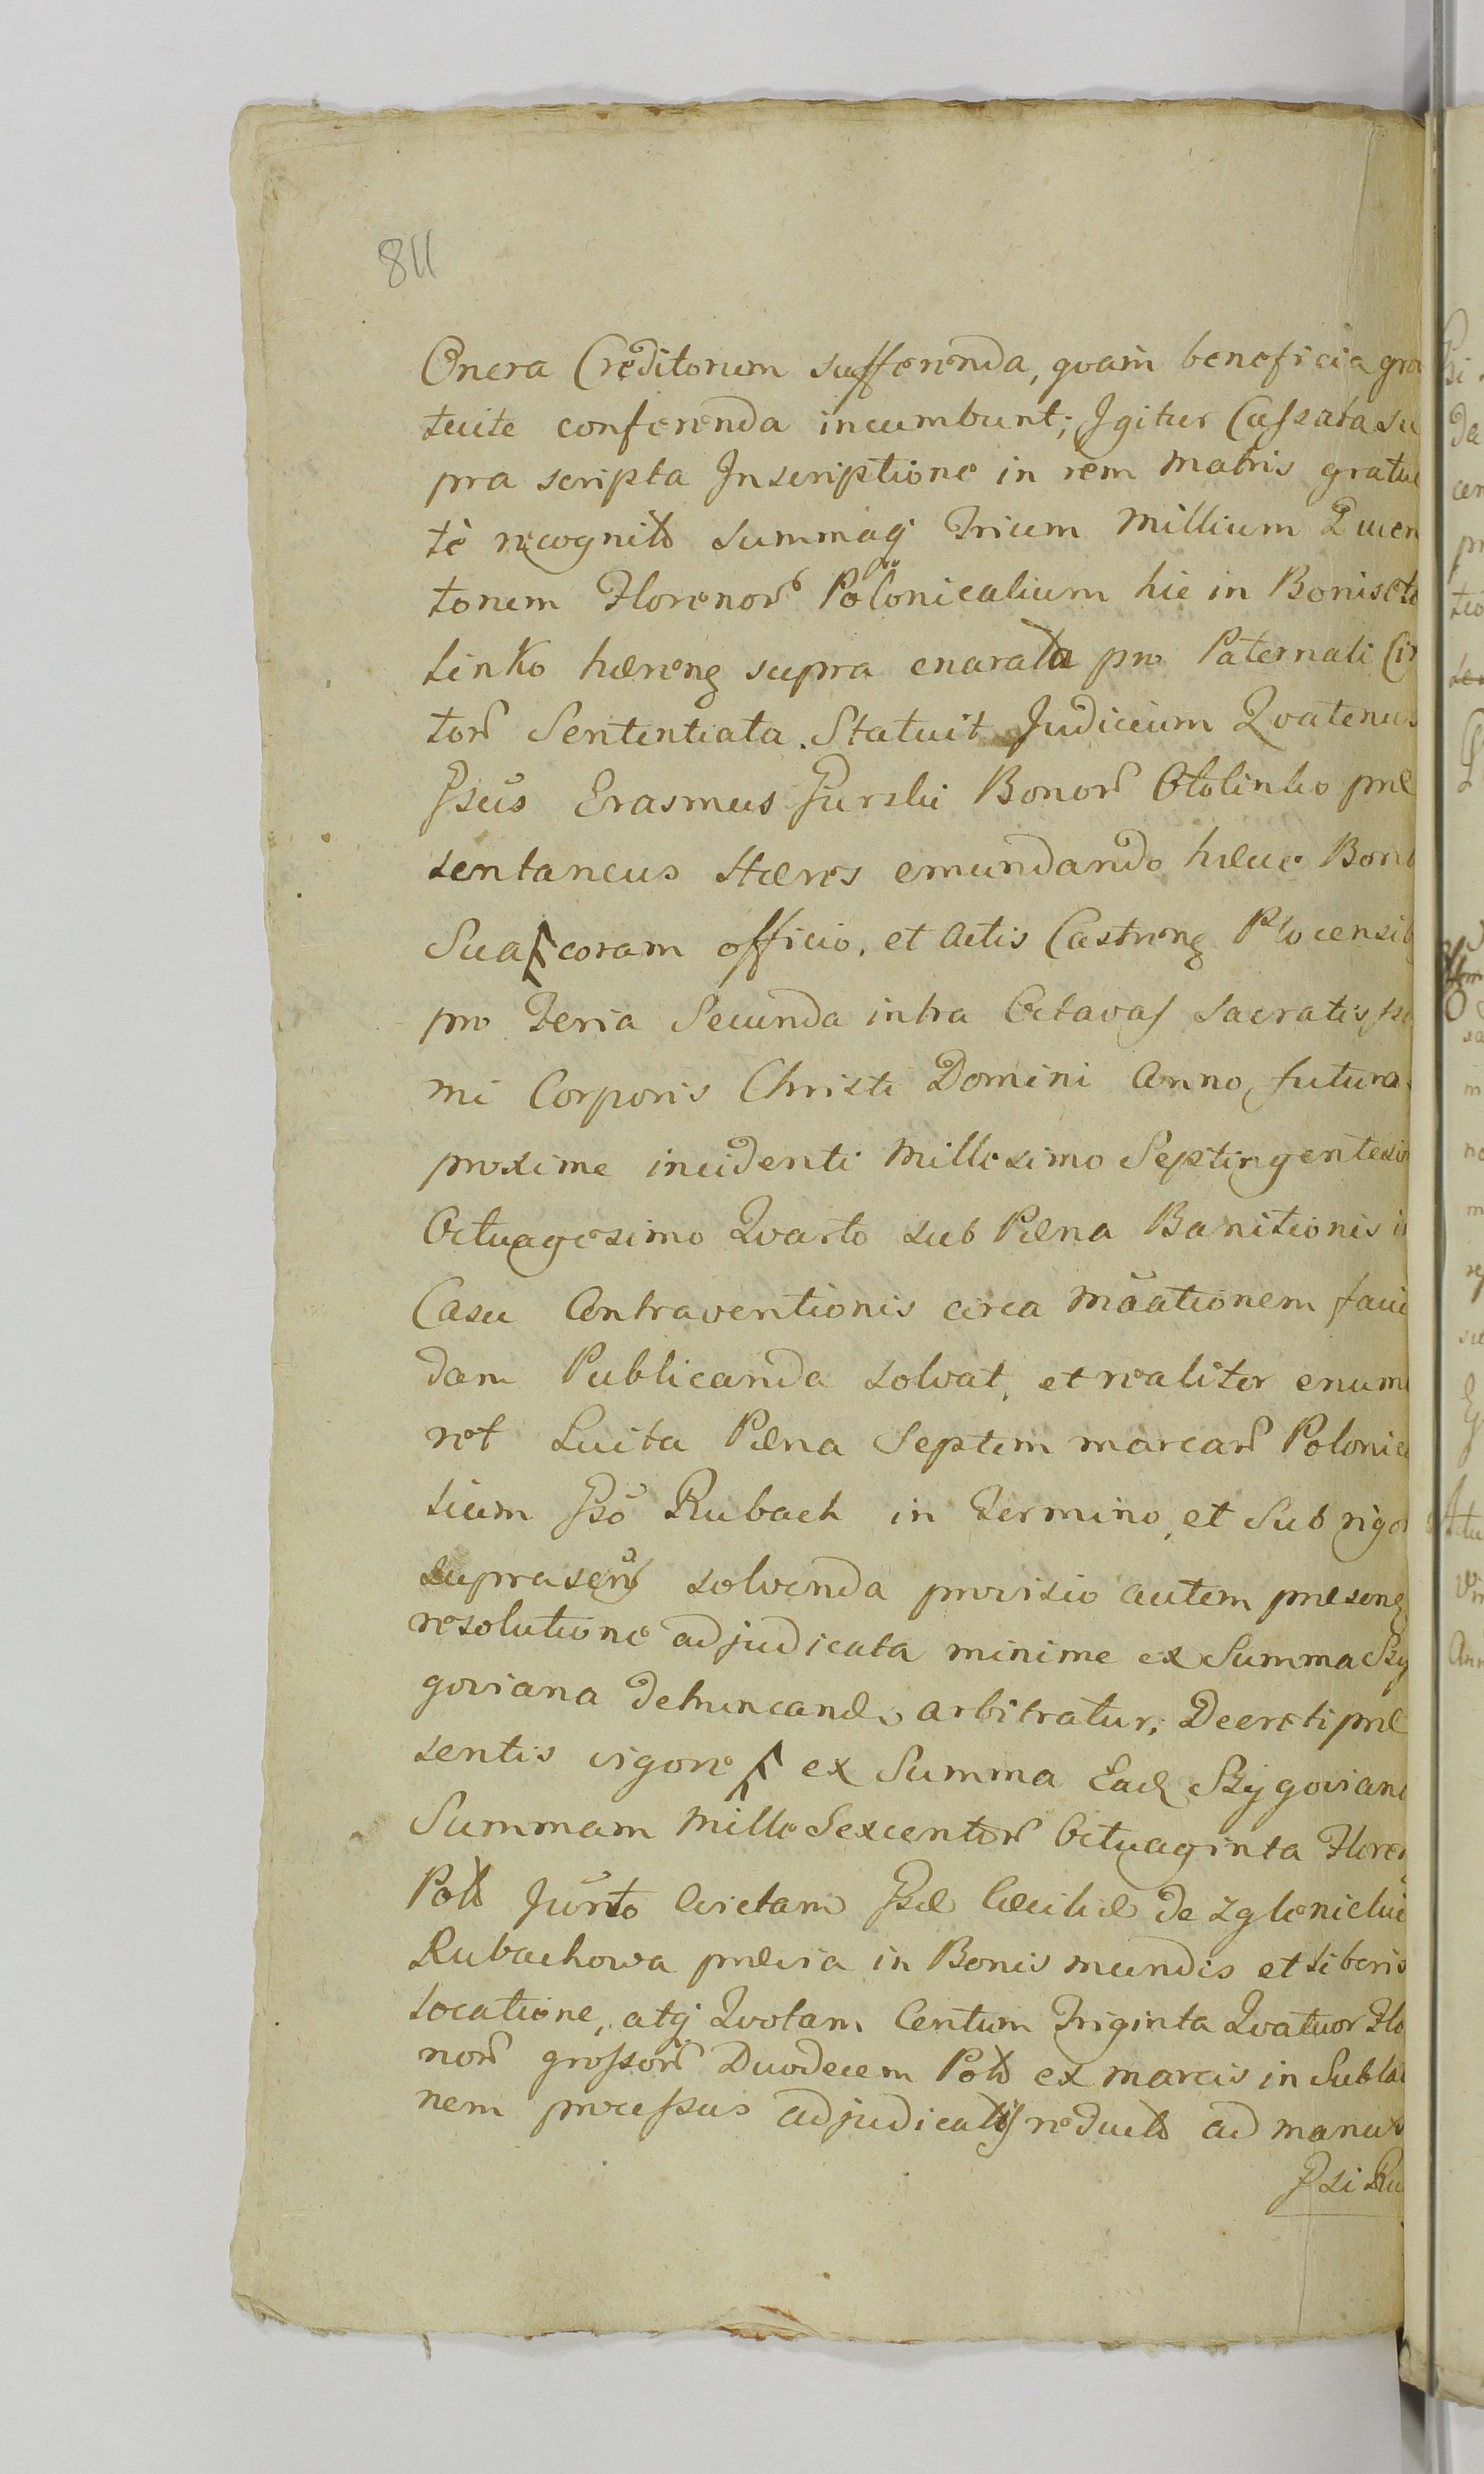 811
Onera Creditorum sufferenda, quam beneficia gra
tuite conferenda incumbunt; Igitur Cassata su
pra scripta Inscriptione in rem Matris gratui
te recognita summaq Trium Millium Ducen
torum Florenor Polonicalium hic in Bonis Oto
linko hærens supra enarata pro Paternali Ci
tor Sententiata. Statuit Judicium Qvatenus
Gsus Erasmus Gurski Bonor Otolinko præ
sentaneus Hæres emundando hæcce Bona
Sua coram officio, et Actis Castren Plocensib
pro Feria Secunda intra Octavas Sacratissi
mi Corporis Christi Domini Anno futura
proxime incidenti Millesimo Septingentesim
Octuagesimo Qvarto sub Pæna Banitionis in
Casu Contraventionis circa Mãationem faci
dam Publicanda solvat, et realiter enume
ret Luita Pæna Septem marcar Polonica
lium Gso Rubach in Termino, et Sub rigor
suprascrij solvenda provisio autem præsen
resolutione adjudicata minime ex Summa Szy
goviana detruncand arbitratur, Decreti præ
sentis vigore ex Summa Ead Szygoviana
Summam Mille Sexcentor Octuaginta Floren
Pol Juncto Evictam Gsæ Cæciliæ de Zglenickie
Rubachowa prævia in Bonis mundis et liberis
locatione, atq Qvotam Centum Triginta Qvatuor Flo
nor grossor Duodecem Pol ex marcis in Subla
nem processus adjudicatis reduct ad manus
Gsi Ru